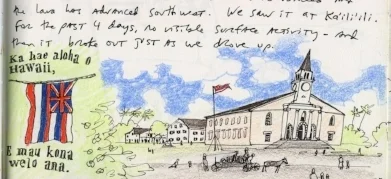 the lava has advanced southwest. We saw it at Ka'ili'ili.
For the past 4 days, no visible surface activity - and
then it broke out just as we drove up.
Ka hae aloha o
Hawaii,
E mau kona
welo ana.